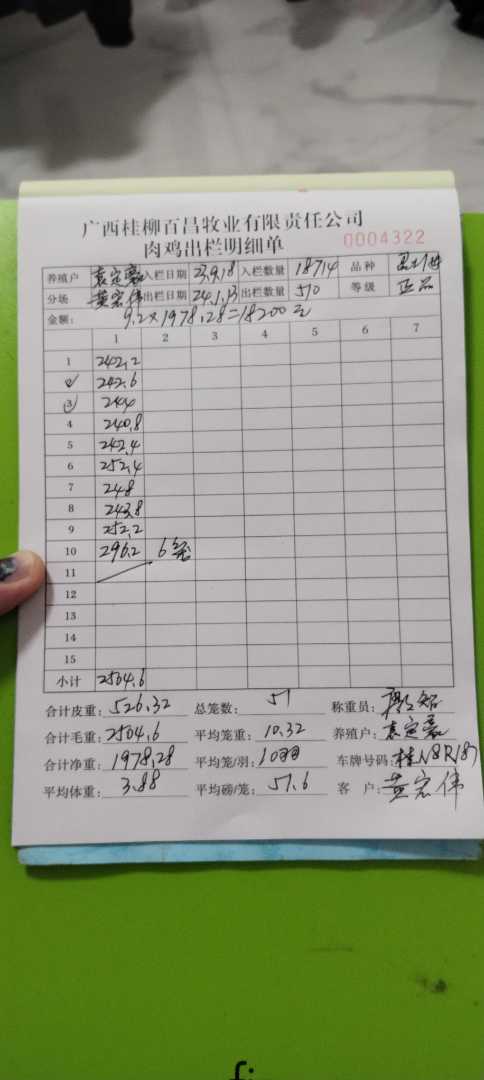 广西桂柳百昌牧业有限责任公司
肉鸡出栏明细单 0004322
养殖户 袁定豪 入栏日期 23.9.18 入栏数量 18714 品种
分场 黄宏伟 出栏日期 24.1.13 出栏数量 510 等级 正品
金额: 9.2×1978.28=18200元
1 2 3 4 5 6 7
1 242.2
2 242.6
3 244
4 240.8
5 242.4
6 252.4
7 248
8 243.8
9 252.2
10 296.2 6笼
11
12
13
14
15
小计 2504.6
合计皮重: 526.32 总笼数: 51 称重员:
合计毛重: 2504.6 平均笼重: 10.32 养殖户: 袁定豪
合计净重: 1978.28 平均笼/羽: 10 车牌号码: 桂N8R187
平均体重: 3.88 平均磅/笼: 51.6 客 户: 黄宏伟